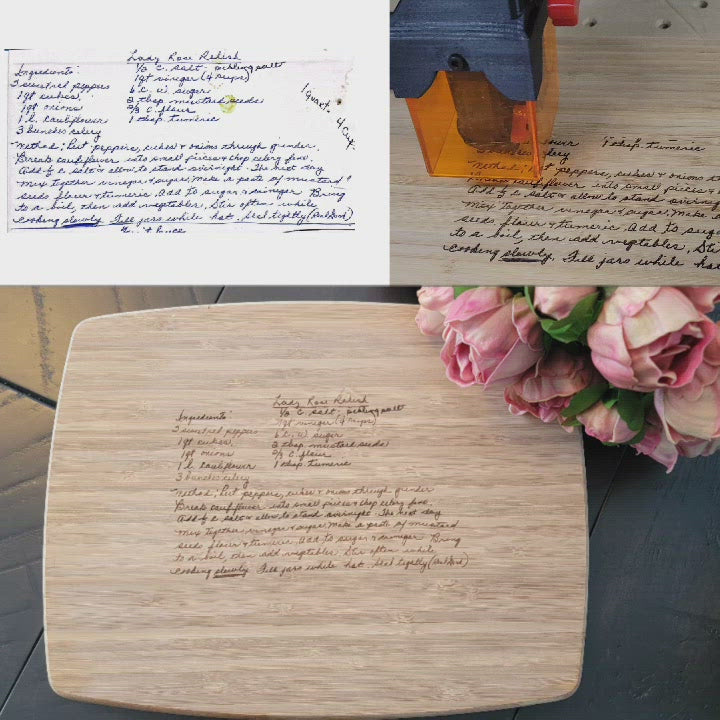 Lady Rose Relish
Ingredients:
1/2 C. salt - pickling salt
3 sweet red peppers
1 qt vinegar (4 cups)
1 qt cukes,
6 C. w. sugar
1 qt onions
2 tbsp mustard seeds
1 l. cauliflower
2/3 C. flour
3 bunches celery
1 tbsp. tumeric
1 quart - 4 cups
Method; Put peppers, cukes & onions through grinder,
Break cauliflower into small pieces & chop celery fine.
Add salt & allow to stand overnight. The next day
mix together vinegar & sugar. Make a paste of mustard
seeds flour & tumeric. Add to sugar & vinegar Bring
to a boil, then add vegetables, Stir often while
cooking slowly. Fill jars while hot. Seal tightly
flour
1 tbsp. tumeric
celery
Method; Put peppers, cukes & onions
cauliflower into small pieces &
Add salt & allow to stand overnight
mix together vinegar & sugar. Make
seeds flour & tumeric. Add to sugar
to a boil, then add vegetables, Stir
cooking slowly. Fill jars while hot
Lady Rose Relish
Ingredients:
1/2 C. salt - pickling salt
3 sweet red peppers
1 qt vinegar (4 cups)
1 qt cukes,
6 C. w. sugar
1 qt onions
2 tbsp mustard seeds
1 l. cauliflower
2/3 C. flour
3 bunches celery
1 tbsp. tumeric
Method; Put peppers, cukes & onions through grinder
Break cauliflower into small pieces & chop celery fine.
Add salt & allow to stand overnight. The next day
mix together vinegar & sugar. Make a paste of mustard
seeds flour & tumeric. Add to sugar & vinegar Bring
to a boil, then add vegetables, Stir often while
cooking slowly. Fill jars while hot. Seal tightly